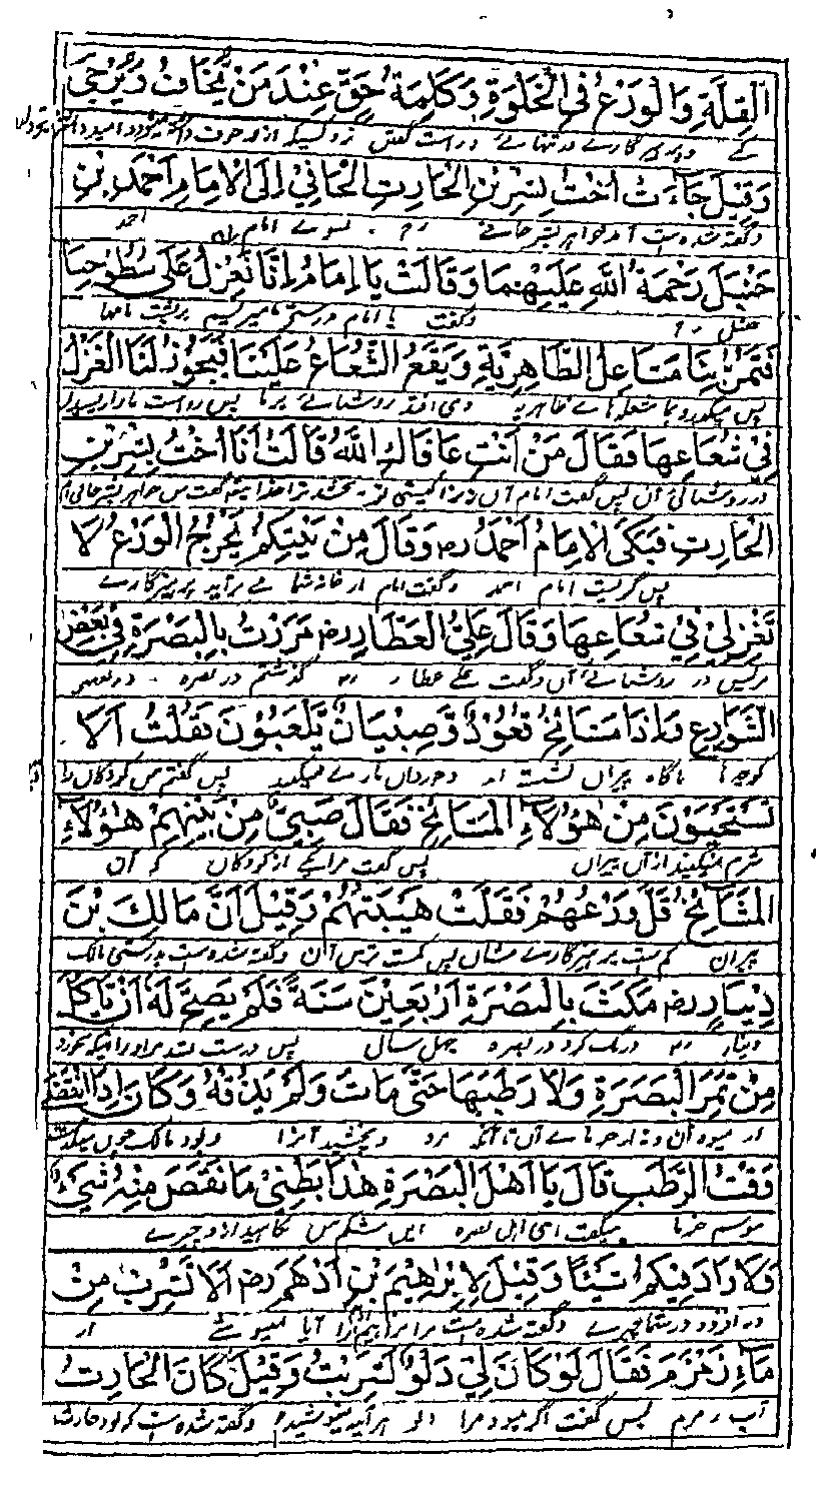 القِلَّةِ وَالْوَرَعُ فِي الْخَلْوَةِ وَكَلِمَةُ حَقٍّ عِنْدَ مَنْ يُّخَافُ وَيُرْجَى
وَقِيْلَ جَاءَتْ اُخْتُ بِشْرِ بْنِ الْحَارِثِ الْحَافِيْ اِلَى الْاِمَامِ اَحْمَدَ بْنِ
وگفته شده است آمد خواهر بشر حافی رح بسوے امام احمد
حَنْبَلَ رَحْمَةُ اللهِ عَلَيْهِمَا وَقَالَتْ يَا اِمَامُ اِنَّا نَغْزِلُ عَلَى سُطُوْحِنَا
حنبل رح وگفت یا امام بدرستی ما میریسیم بر پشت بامها
فَتَمُرُّ بِنَا مَشَاعِلُ الظَّاهِرِيَّةِ وَيَقَعُ الشُّعَاعُ عَلَيْنَا فَيَجُوْزُ لَنَا الْغَزْلُ
پس میگذرد بما مشعلهاے ظاهریه ومی افتد روشنائے برما پس رواست مارا ریسیدن
فِيْ شُعَاعِهَا فَقَالَ مَنْ اَنْتِ عَافَاكِ اللهُ قَالَتْ اَنَا اُخْتُ بِشْرِ بْنِ
الْحَارِثِ فَبَكَى الْاِمَامُ اَحْمَدُ رح وَقَالَ مِنْ بَيْتِكُمْ يَخْرُجُ الْوَرَعُ لَا
پس گریست امام احمد وگفت امام از خانه شما مے برآید پرهیزگارے
تَغْزِلِيْ فِيْ شُعَاعِهَا وَقَالَ عَلِيُّ الْعَطَّارِ رض مَرَرْتُ بِالْبَصْرَةِ فِيْ بَعْضِ
مریس در روشنائے آن وگفت علے عطار رح گذشتم در بصره در بعض
الشَّوَارِعِ وَاِذَا مَشَائِخُ قُعُوْدٌ وَّصِبْيَانٌ يَّلْعَبُوْنَ فَقُلْتُ اَلَا
کوچه ها ناگاه پیران نشسته اند وخوردان بازے میکنند پس گفتم من کودکان را
تَسْتَحْيُوْنَ مِنْ هٰؤُلَاءِ الْمَشَائِخِ فَقَالَ صَبِيٌّ مِنْ بَيْنِهِمْ هٰؤُلَاءِ
شرم نمیکنید ازاں پیران پس گفت مرا یکے از کودکان که آن
الْمَشَائِخُ قَلَّ وَرَعُهُمْ فَقَلَّتْ هَيْبَتُهُمْ وَقِيْلَ اَنَّ مَالِكَ بْنَ
پیران کم است پرهیزگارے ایشاں پس کمست ترس آن وگفته شده است بدرستی مالک
دِيْنَارٍ رض مَكَثَ بِالْبَصْرَةِ اَرْبَعِيْنَ سَنَةً فَلَمْ يَصِحَّ لَهُ اَنْ يَّاكُلَ
دینار رح درنگ کرد در بصره چهل سال پس درست نشد مر اورا اینکه بخورد
مِنْ تَمْرِ الْبَصْرَةِ وَلَا رُطَبِهَا حَتّٰى مَاتَ وَلَمْ يَذُقْهُ وَكَانَ اِذَا انْقَضٰى
وَقْتُ الرُّطَبِ قَالَ يَا اَهْلَ الْبَصْرَةِ هٰذَا بَطْنِيْ مَا نَقَصَ مِنْهُ شَيْءٌ
موسم خرما میگفت ای اهل بصره این شکم من نکاهید ازو چیزے
وَلَا زَادَ فِيْكُمْ شَيْئًا وَقِيْلَ لِاِبْرَاهِيْمَ بْنِ اَدْهَمَ رض اَلَا تَشْرَبُ مِنْ
ونه افزود در شما چیزے وگفته شده است مر ابراهیم را آیا نمینوشے از
مَاءِ زَمْزَمَ فَقَالَ لَوْ كَانَ لِيْ دَلْوٌ لَشَرِبْتُ وَقِيْلَ كَانَ الْحَارِثُ
آب زمزم پس گفت اگر میبود مرا دلو هر آینه مینوشیدم وگفته شده است که بود حارث